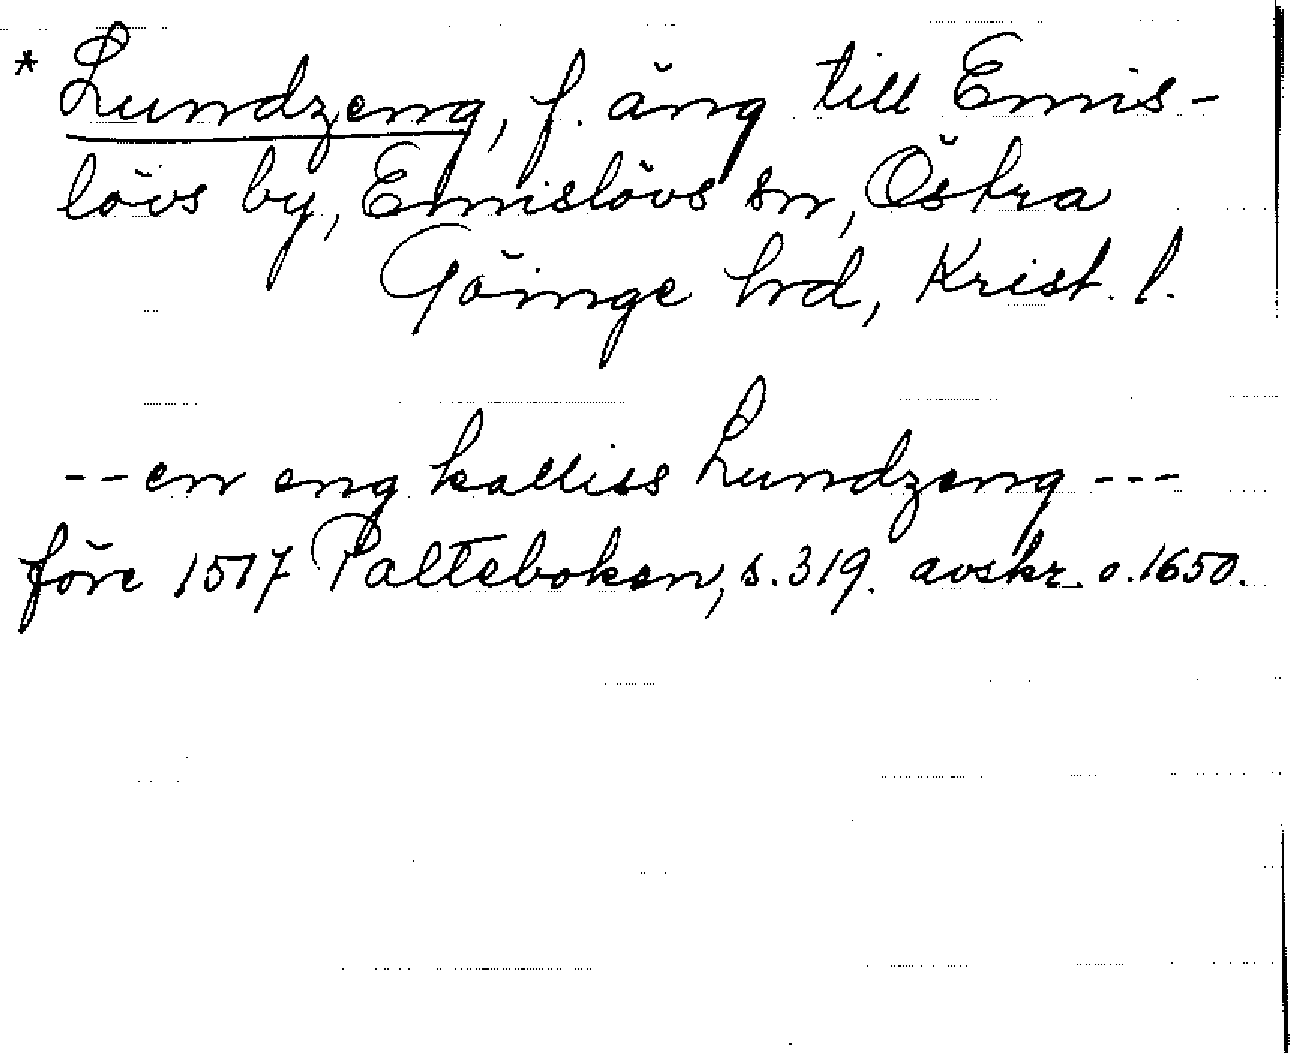 * Lundzeng, f. äng till Emis-
lövs by, Emislövs sn, Östra
Göinge hrd, Krist. l.
-- en eng kalliss Lundzeng ---
före 1517 Palteboken, s. 319. avskr. o. 1650.